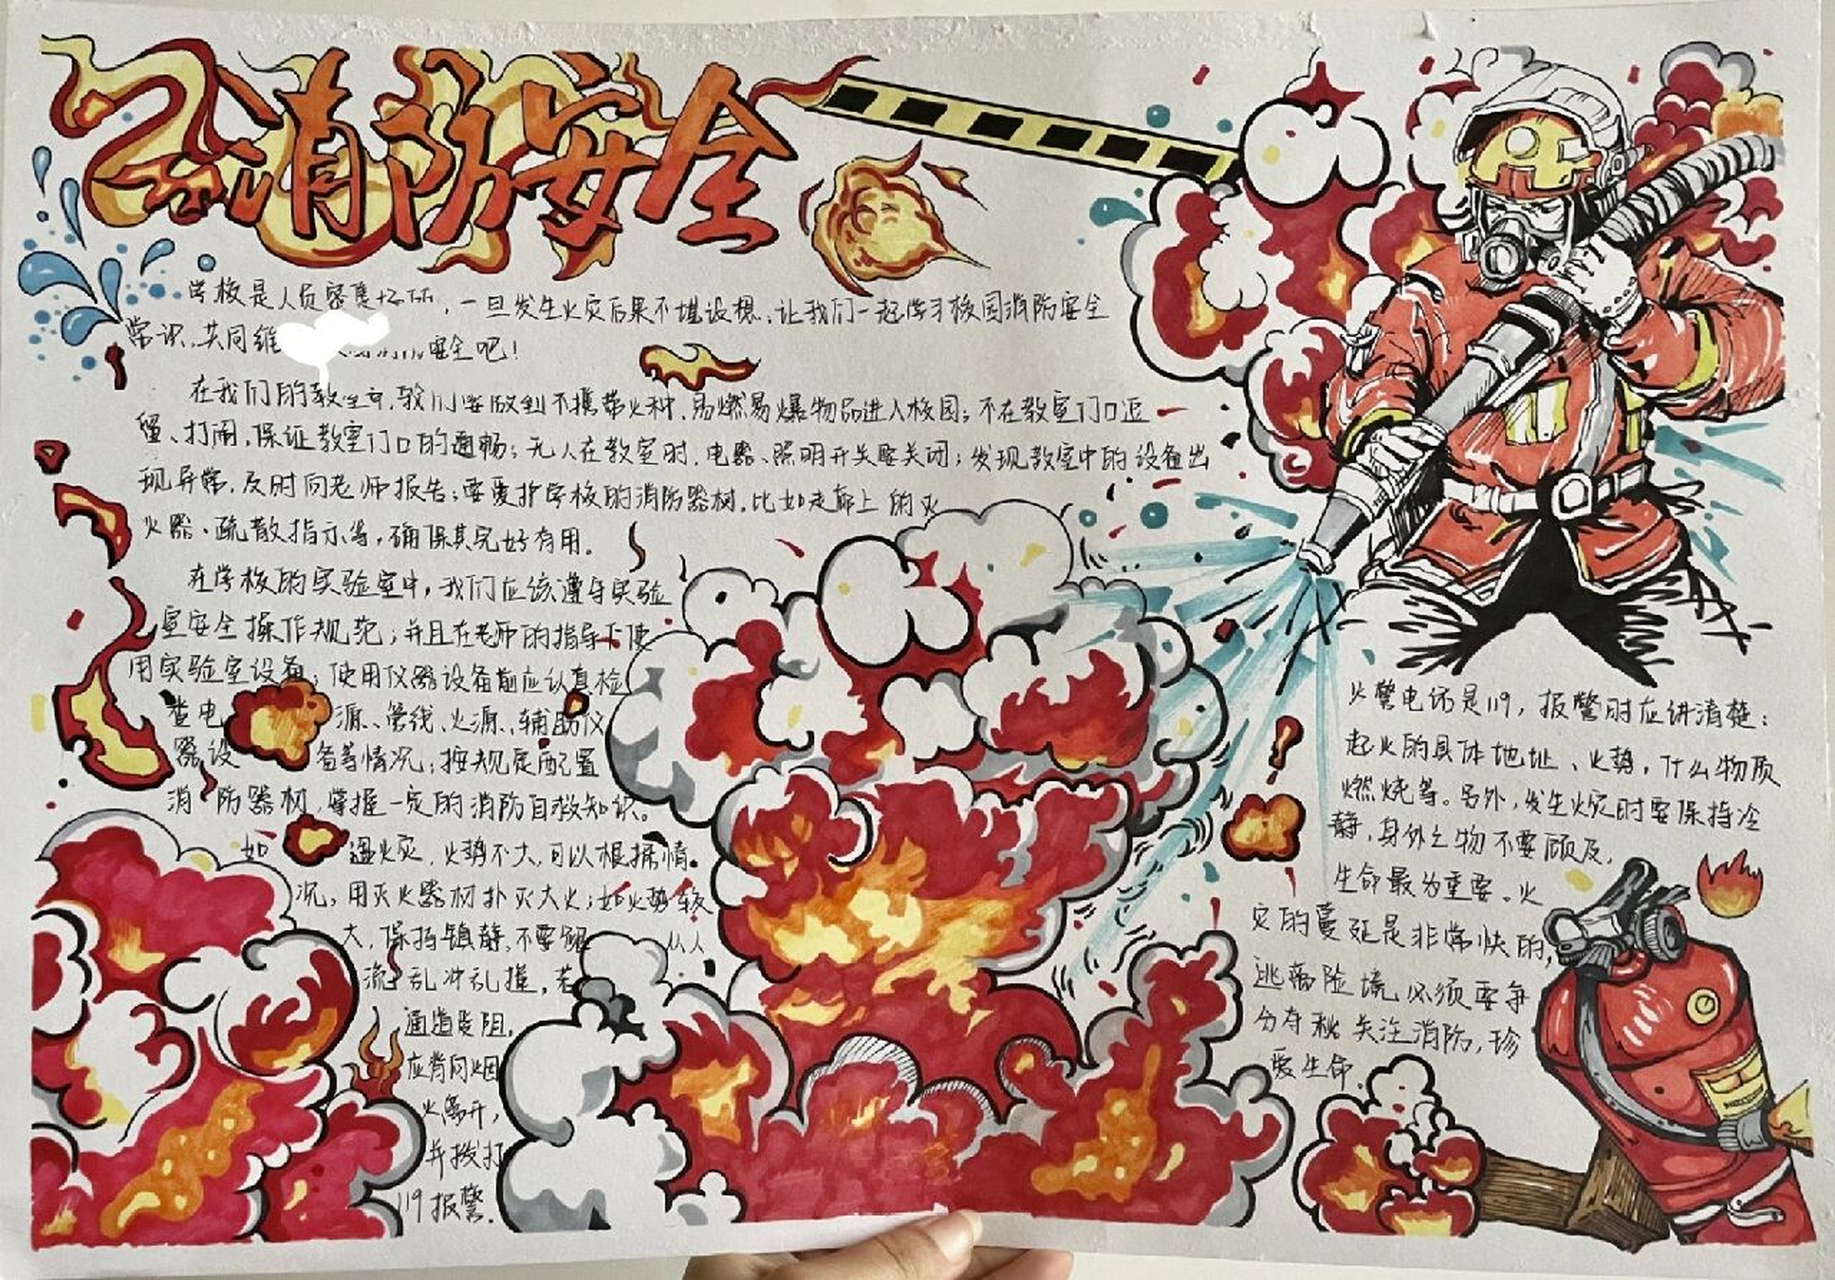 消防安全
学校是人员密集场所，一旦发生火灾后果不堪设想，让我们一起学习校园消防安全
常识，共同维 安全吧！
在我们的教室中，我们要做到不携带火种，易燃易爆物品进入校园；不在教室门口逗
留、打闹，保证教室门口的通畅；无人在教室时，电器、照明开关要关闭；发现教室中的设备出
现异常，及时向老师报告；要爱护学校的消防器材，比如走廊上的灭
火器、疏散指示等，确保其完好有用。
在学校的实验室中，我们应该遵守实验
室安全操作规范；并且在老师的指导下使
用实验室设备；使用仪器设备前应认真检
查电源、管线、火源、辅助仪
器设备等情况；按规定配置
消防器材，掌握一定的消防自救知识。
如遇火灾，火势不大，可以根据情
况，用灭火器材扑灭大火；如火势较
大，保持镇静，不要跟从人
流乱冲乱撞，若
通道受阻，
应背向烟
火离开，
并拨打
119报警.
火警电话是119，报警时应讲清楚：
起火的具体地址、火势，什么物质
燃烧等。另外，发生火灾时要保持冷
静，身外之物不要顾及，
生命最为重要。火
灾的蔓延是非常快的，
逃离险境必须要争
分夺秒关注消防，珍
爱生命.